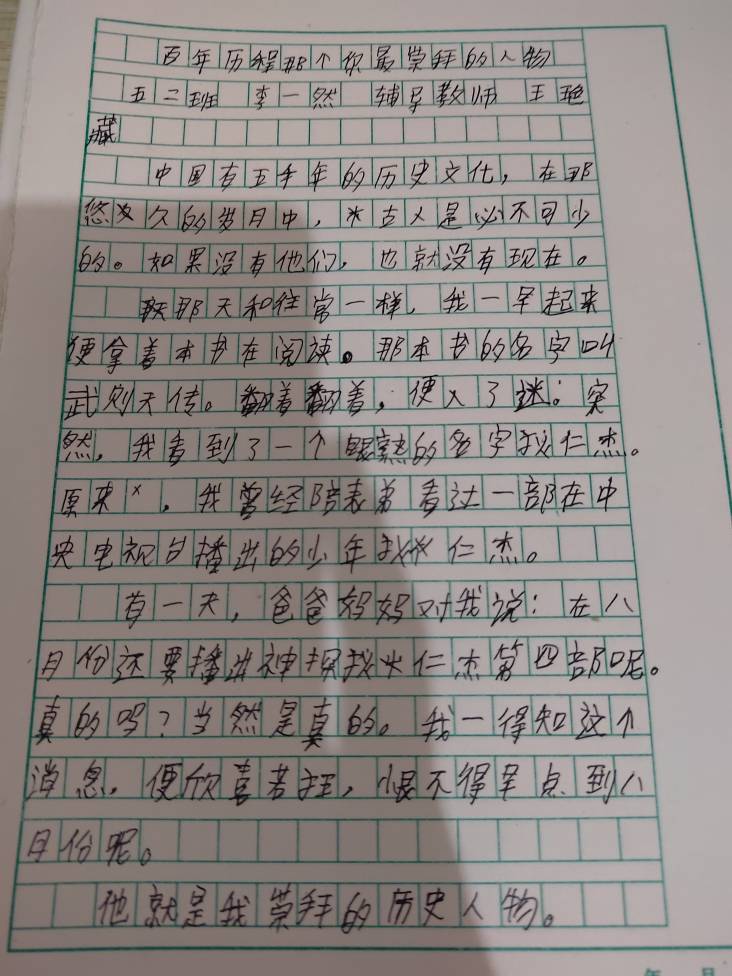 百年历程那个你最崇拜的人物
五二班 李一然 辅导教师 王艳
藏
中国有五千年的历史文化，在那
悠久的岁月中，古人是必不可少
的。如果没有他们，也就没有现在。
那天和往常一样，我一早起来
便拿着本书在阅读。那本书的名字叫
武则天传。翻着翻着，便入了迷。突
然，我看到了一个眼熟的名字狄仁杰。
原来，我曾经陪表弟看过一部在中
央电视台播出的少年狄仁杰。
有一天，爸爸妈妈对我说：在八
月份还要播出神探狄仁杰第四部呢。
真的吗？当然是真的。我一得知这个
消息，便欣喜若狂，恨不得早点到八
月份呢。
他就是我崇拜的历史人物。